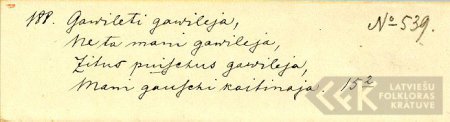 188. Gawileti gawileja, № 539.
Ne ta mani gawileja,
Zitus puischus gawileja,
Mani gauschi kaitinaja. 15²
LATVIEŠU
FOLKLORAS
KRĀTUVE